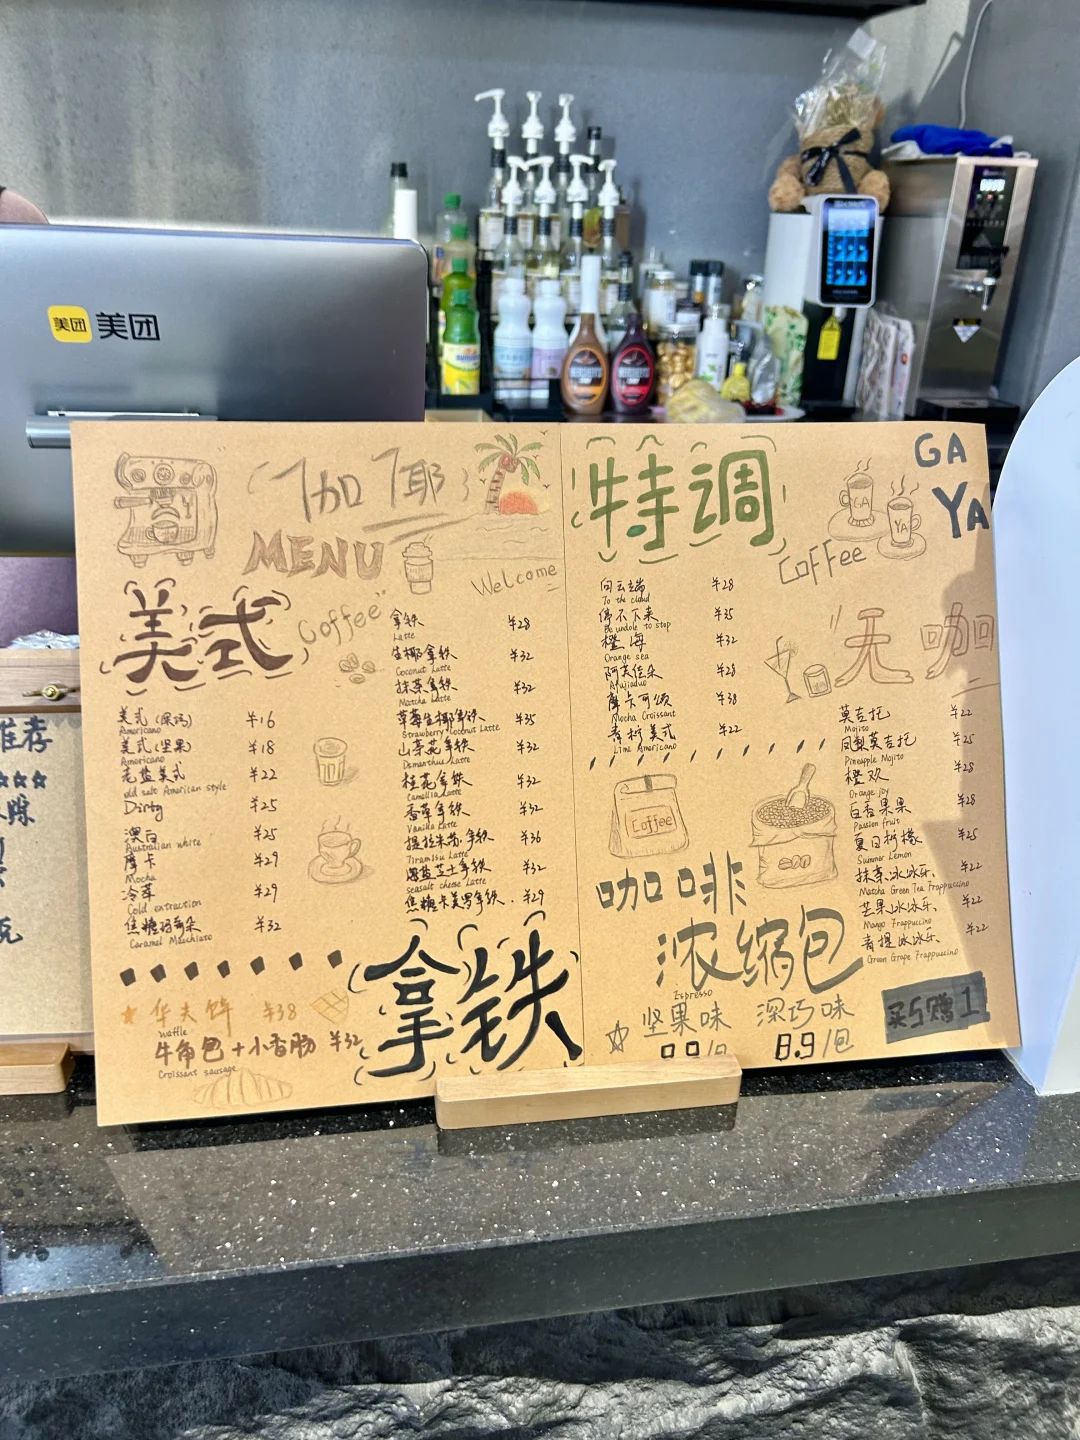 美团 美团
伽耶
MENU
Welcome
美式
Coffee
美式(深巧) ¥16
Americano
美式(坚果) ¥18
Americano
老盐美式 ¥22
old salt American style
Dirty ¥25
澳白 ¥25
Australian white
摩卡 ¥29
Mocha
冷萃 ¥29
Cold extraction
焦糖玛奇朵 ¥32
Caramel Macchiato
华夫饼 ¥38
waffle
牛角包+小香肠 ¥32
Croissant sausage
拿铁 ¥28
Latte
生椰拿铁 ¥32
Coconut Latte
抹茶拿铁 ¥32
Matcha Latte
草莓生椰拿铁 ¥35
Strawberry Coconut Latte
山茶花拿铁 ¥32
Osmanthus Latte
桂花拿铁 ¥32
Camellia Latte
香草拿铁 ¥32
Vanilla Latte
提拉米苏拿铁 ¥36
Tiramisu Latte
海盐芝士拿铁 ¥32
seasalt cheese Latte
焦糖卡美罗拿铁 ¥29
拿铁
特调
GA
YA
GA
YA
Coffee
向云端 ¥28
To the cloud
停不下来 ¥35
Be undole to stop
橙海 ¥32
Orange sea
阿芙佳朵 ¥28
Afujiaduo
摩卡可颂 ¥38
Mocha Croissant
青柠美式 ¥22
Lime Americano
Coffee
咖啡
浓缩包
Espresso
坚果味 深巧味
8.9/包
无咖
莫吉托 ¥22
Mojito
凤梨莫吉托 ¥25
Pineapple Mojito
橙欢 ¥28
Orange joy
百香果果 ¥28
Passion fruit
夏日柠檬 ¥25
Summer Lemon
抹茶冰冰乐 ¥22
Matcha Green Tea Frappuccino
芒果冰冰乐 ¥22
Mango Frappuccino
青提冰冰乐 ¥22
Green Grape Frappuccino
买5赠1
推荐